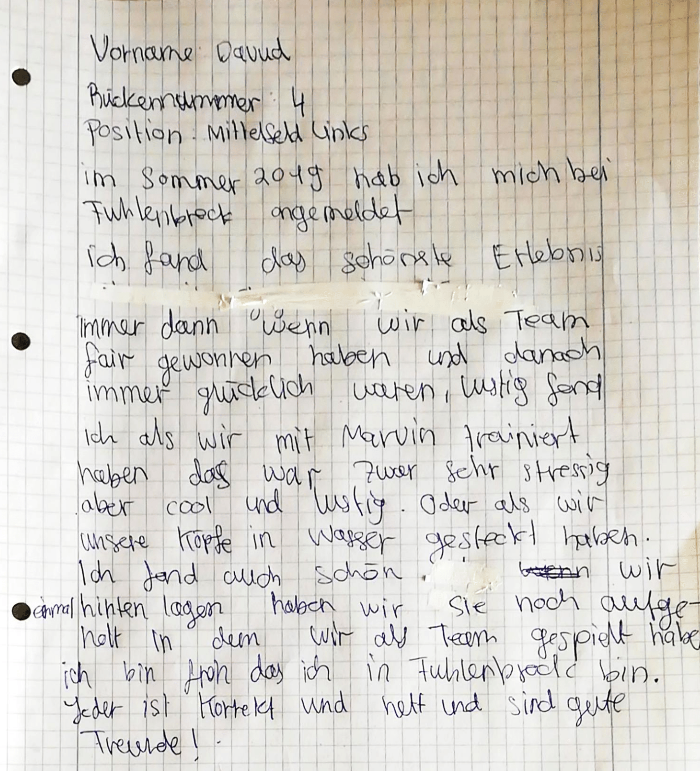 Vorname: Davud
Rückennummer: 4
Position: Mittelfeld Links
im Sommer 2019 hab ich mich bei
Fuhlenbrock angemeldet
ich fand das schönste Erlebnis
immer dann wenn wir als Team
fair gewonnen haben und danach
immer glücklich waren, lustig fand
ich als wir mit Marvin trainiert
haben das war zwar sehr stressig
aber cool und lustig. Oder als wir
unsere Köpfe in Wasser gesteckt haben.
Ich fand auch schön wir
einmal hinten lagen haben wir sie noch aufge-
holt in dem wir als Team gespielt habe
ich bin froh das ich in Fuhlenbrock bin.
Jeder ist Korrekt und nett und sind gute
Freunde!